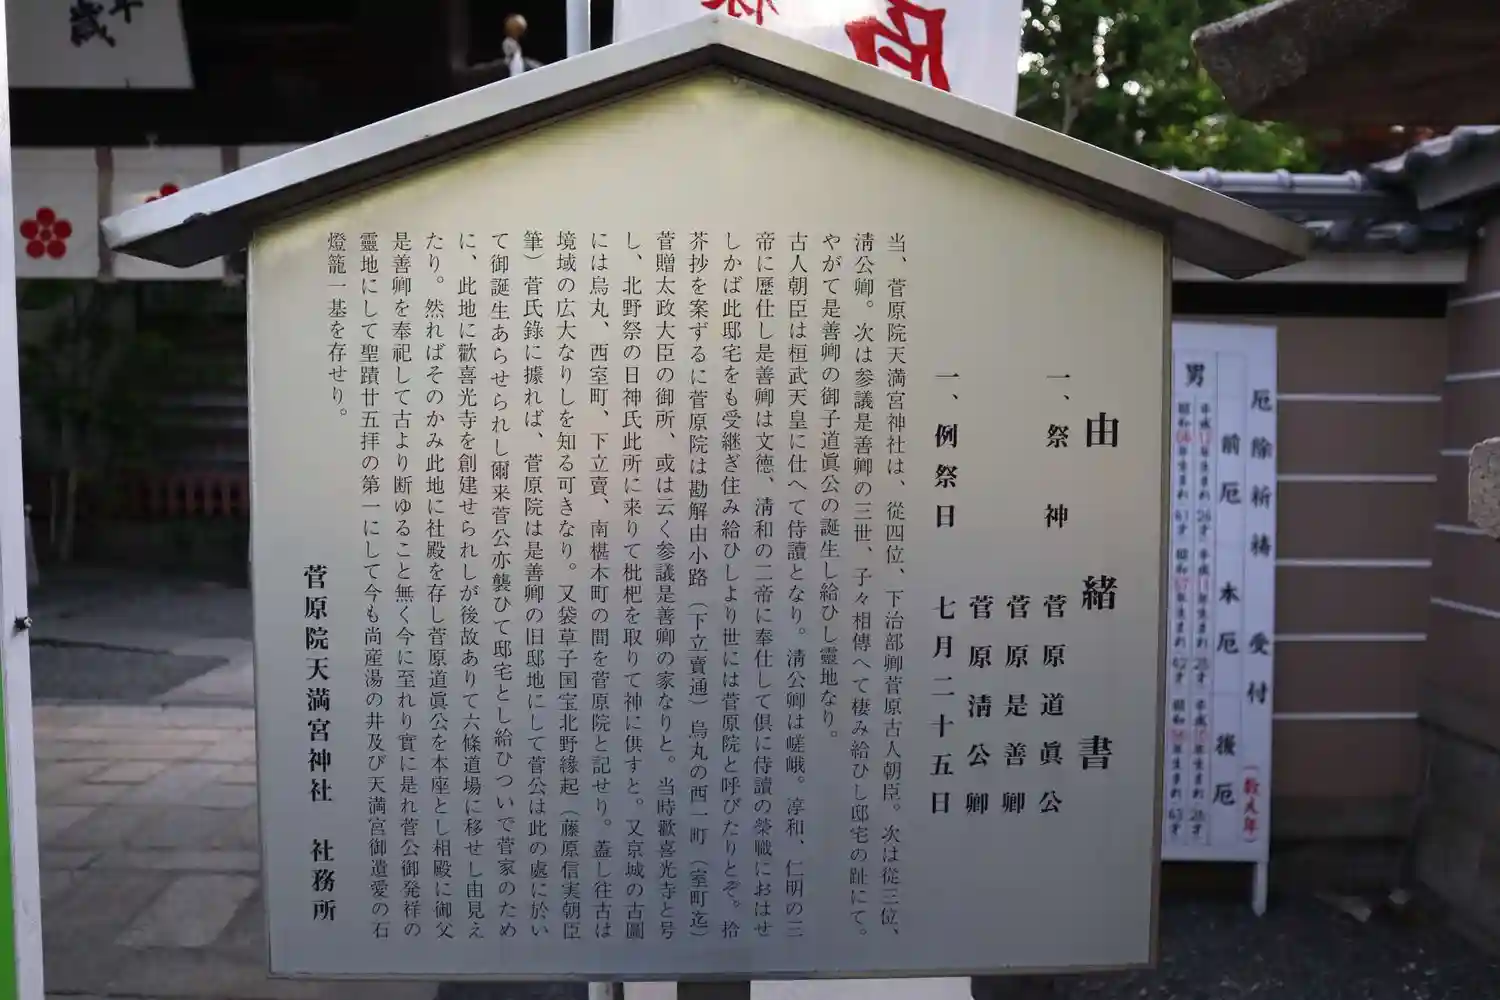 由緒書
一、祭神 菅原道眞公
菅原是善卿
菅原淸公卿
一、例祭日 七月二十五日
当、菅原院天満宮神社は、従四位、下治部卿菅原古人朝臣。次は従三位、
淸公卿。次は参議是善卿の三世、子々相傳へて棲み給ひし邸宅の趾にて。
やがて是善卿の御子道眞公の誕生し給ひし靈地なり。
古人朝臣は桓武天皇に仕へて侍讀となり。淸公卿は嵯峨。淳和、仁明の三
帝に歷仕し是善卿は文徳、淸和の二帝に奉仕して倶に侍讀の榮職におはせ
しかば此邸宅をも受継ぎ住み給ひしより世には菅原院と呼びたりとぞ。拾
芥抄を案ずるに菅原院は勘解由小路（下立賣通）烏丸の西一町（室町迄）
菅贈太政大臣の御所、或は云く参議是善卿の家なりと。当時歡喜光寺と号
し、北野祭の日神氏此所に来りて枇杷を取りて神に供すと。又京城の古圖
には烏丸、西室町、下立賣、南椹木町の間を菅原院と記せり。蓋し往古は
境域の広大なりしを知る可きなり。又袋草子国宝北野緣起（藤原信実朝臣
筆）菅氏錄に據れば、菅原院は是善卿の旧邸地にして菅公は此の處に於い
て御誕生あらせられし爾来菅公亦襲ひて邸宅とし給ひついで菅家のため
に、此地に歡喜光寺を創建せられしが後故ありて六條道場に移せし由見え
たり。然ればそのかみ此地に社殿を存し菅原道眞公を本座とし相殿に御父
是善卿を奉祀して古より断ゆること無く今に至れり實に是れ菅公御発祥の
靈地にして聖蹟廿五拝の第一にして今も尚産湯の井及び天満宮御遺愛の石
燈籠一基を存せり。
菅原院天満宮神社 社務所
厄除祈祷受付
（数え年）
前厄 本厄 後厄
男